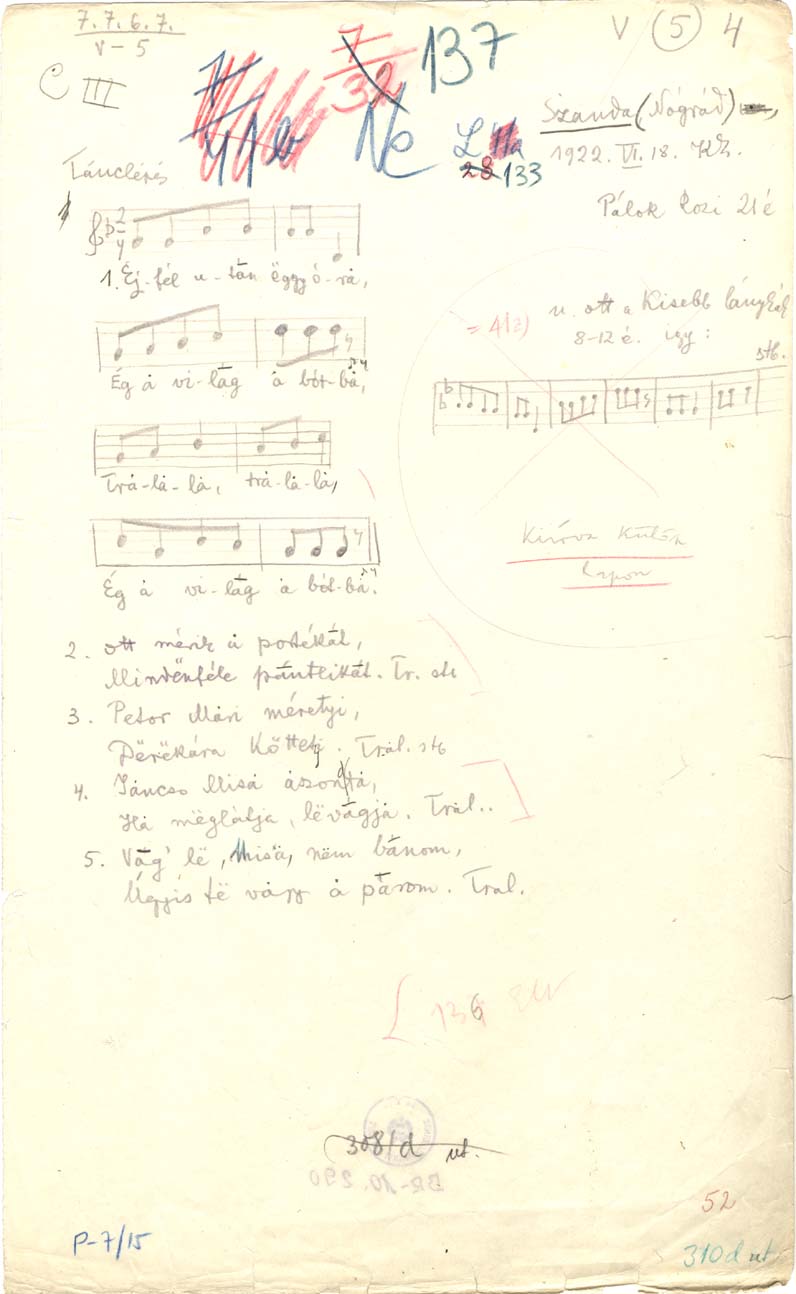 7. 7. 6. 7.
V – 5
V (5) 4
C III
7
32
137
Szanda (Nógrád)
1922. VI. 18. KZ.
Ne
28 133
Pálok Rozi 21 é
Tánclérés
2
4
1. Éj-fél u-tán ëggy ó-rá,
u. ott a kisebb lánykák
= 4(2)
8–12 é. így:
stb.
Ég á vi-lág á bót-bá,
Trá-lá-lá, trá-lá-lá,
Kiírva külön
lapon
Ég á vi-lág á bót-bá.
2. ott mérik á portékát,
Mindënféle pántlikát. Tr. stb
3. Petor Mári méretyi,
Dërëkára köttetyi. Trál. stb
4. Jáncso Misá ászontá,
Há mëglátja, lëvágjá. Trál..
5. Vág' lë, Misá, nëm bánom,
Úgyis të vagy á párom. Tral.
L 136
308/d ut.
BR-10.290
52
P-7/15
310 d ut